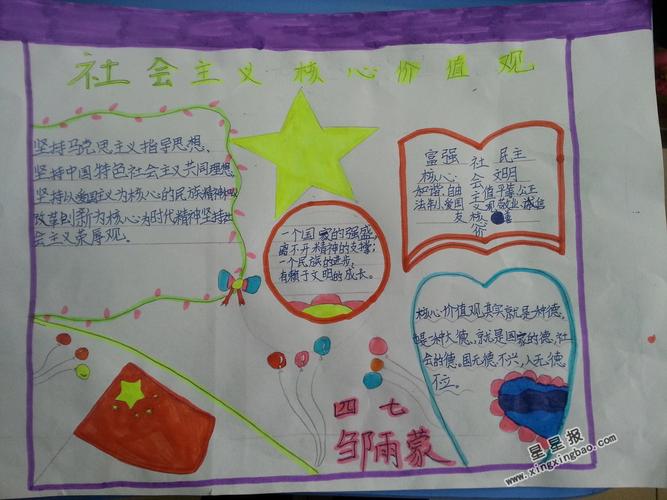 社会主义核心价值观
坚持马克思主义指导思想、
坚持中国特色社会主义共同理想、
坚持以爱国主义为核心的民族精神和
改革创新为核心为时代精神坚持社
会主义荣辱观。
一个国家的强盛,
离不开精神的支撑;
一个民族的进步,
有赖于文明的成长。
富强 社 民主
核心 会 文明
和谐、自由 主 值平等、公正
法制、爱国 义 敬业、诚信
友 核 善
心
价
核心价值观其实就是一种德,
也是一种大德、就是国家的德、社
会的德。国无德不兴,人无德
不立。
四 七
邹雨蒙
星星报
www.xingxingbao.com